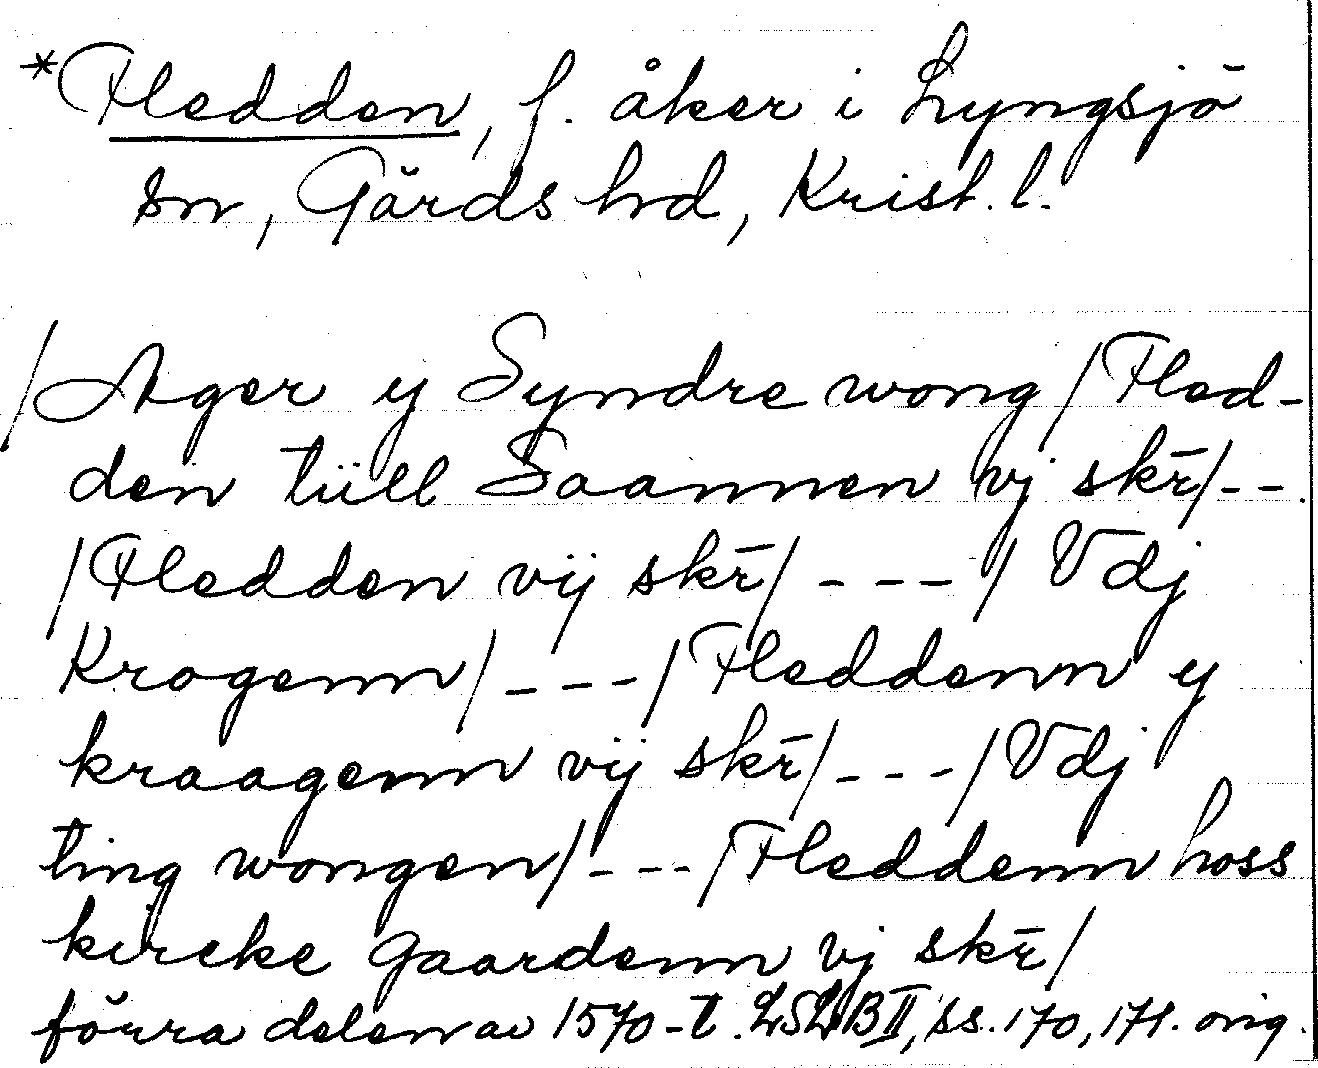 *Fledden, f. åker i Lyngsjö
sn, Gärds hd, Krist. l.
/Ager y Syndre wong/Fled-
den tüll Saannen vj skr̄/--
/Fledden vij skr̄/---/Vdj
Krogenn/---/Fleddenn y
kraagenn vij skr̄/---/Vdj
ting wongen/---/Fleddenn hoss
kircke gaardenn vj skr̄/
förra delen av 1570-t. LSLB II, ss. 170, 171. orig.